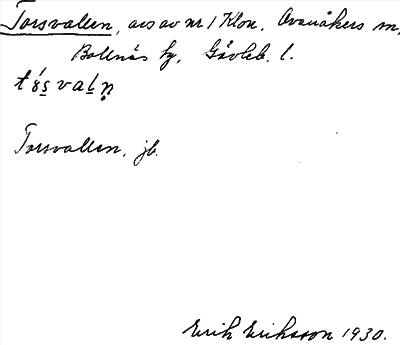 Torsvallen, avs av nr 1 Klon, Ovanåkers sn,
Bollnäs fg, Gävleb. l.
tósvaln̥
Torsvallen, jb.
Erik Eriksson 1930.